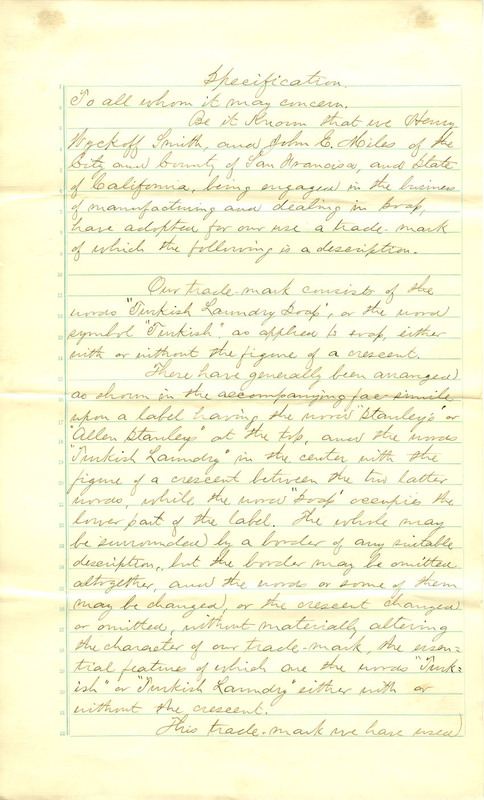 Specification.
To all whom it may concern.
Be it Known that we Henry
Wyckoff Smith, and John E. Miles of the
City and County of San Francisco, and State
of California, being engaged in the business
of manufacturing and dealing in Soap,
have adopted for our use a trade-mark
of which the following is a description.
Our trade-mark consists of the
words "Turkish Laundry Soap", or the word
symbol "Turkish". as applied to soap, either
with or without the figure of a crescent.
These have generally been arranged
as shown in the accompanying fac-simile
upon a label having the word "Stanley's" or
"Allen Stanleys" at the top, and the words
"Turkish Laundry" in the center with the
figure of a crescent between the two latter
words, while the word "Soap" occupies the
lower part of the label. The whole may
be surrounded by a border of any suitable
description, but the border may be omitted
altogether, and the words or some of them
may be changed, or the crescent changed
or omitted, without materially altering
the character of our trade-mark, the essen=
tial features of which are the words "Turk=
ish" or "Turkish Laundry" either with or
without the crescent.
This trade-mark we have used